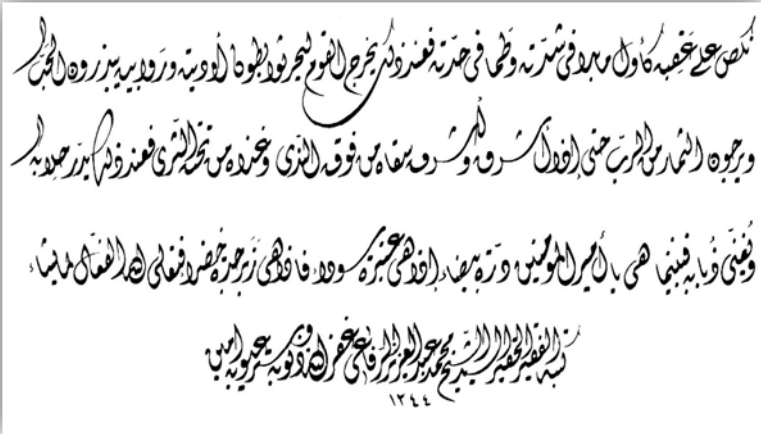 نكص على عقبه كأول ما بدا في شدّته وطما في حدّته فعند ذلك يخرج القوم ليحرثوا بطون أوديته وروابيه يبذرون الحبّ
ويرجون الثمار من الربّ حتى إذا أشرق وأشرف سقاه من فوقه الندى وغذاه من تحته الثرى فعند ذلك يدرّ حلابه
ويُغني ذبابه فبينما هي يا أمير المؤمنين درّة بيضاء إذا هي عنبرة سوداء فإذا هي زبرجدة خضراء فتعالى الله الفعّال لما يشاء
كتبه الفقير الحقير السيد الشيخ محمد عبد العزيز الرفاعي غفر الله ذنوبه وستر عيوبه امين
١٣٤٤